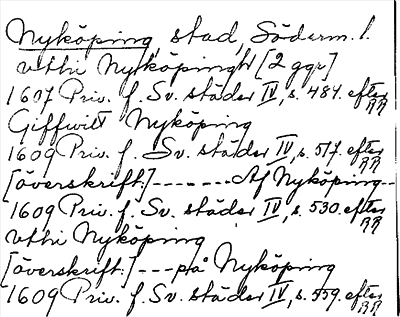 Nyköping, stad, Söderm. l.
vthi Nyköpingh [2 ggr]
1607 Priv. f. Sv. städer IV, s. 484. efter RR
Giffwitt Nyköping
1609 Priv. f. Sv. städer IV, s. 517. efter RR
[överskrift:] ------ Af Nyköping --
1609 Priv. f. Sv. städer IV, s. 530. efter RR
vthi Nyköping
[överskrift:] --- på Nyköping
1609 Priv. f. Sv. städer IV, s. 559. efter RR